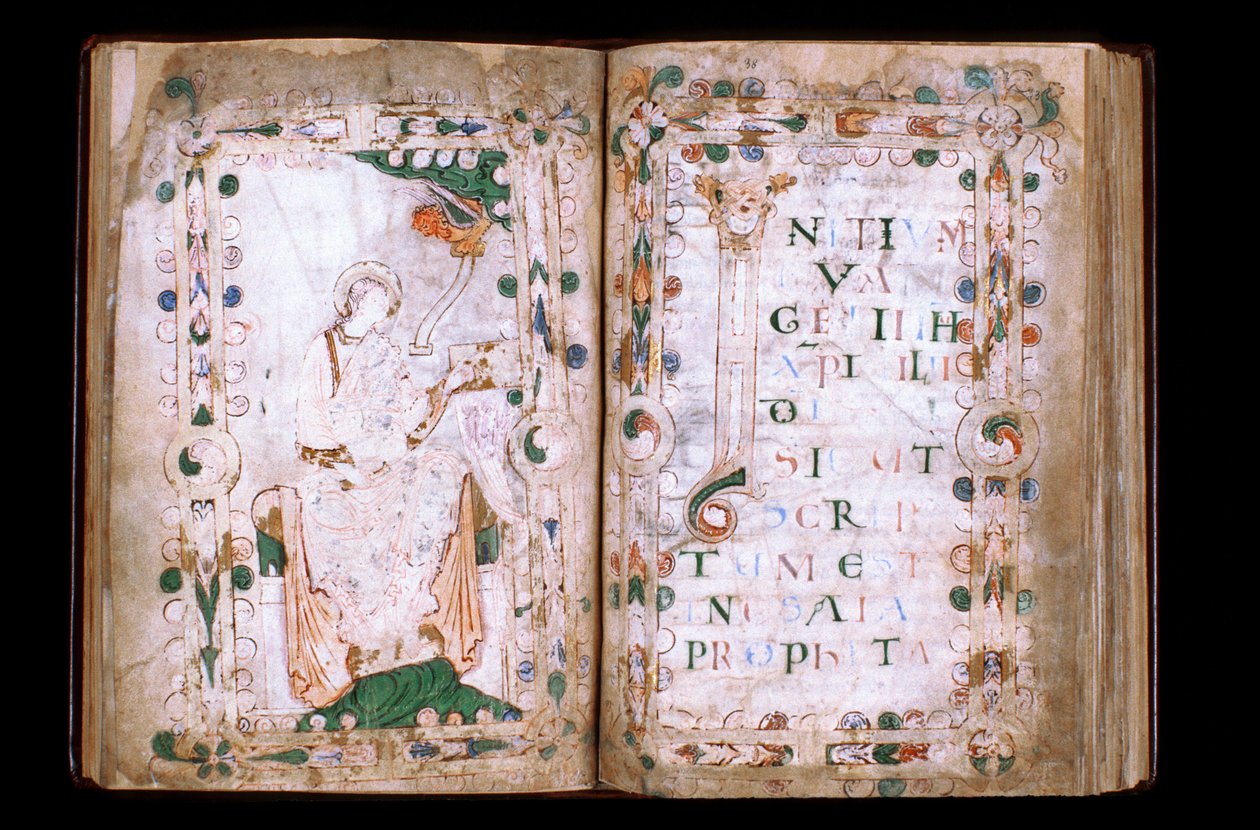 38
INITIVM
EVAN
GELII IH̄
XPI FILII
DI
SICUT
SCRIP
TUM EST
IN ESAIA
PROPHETA